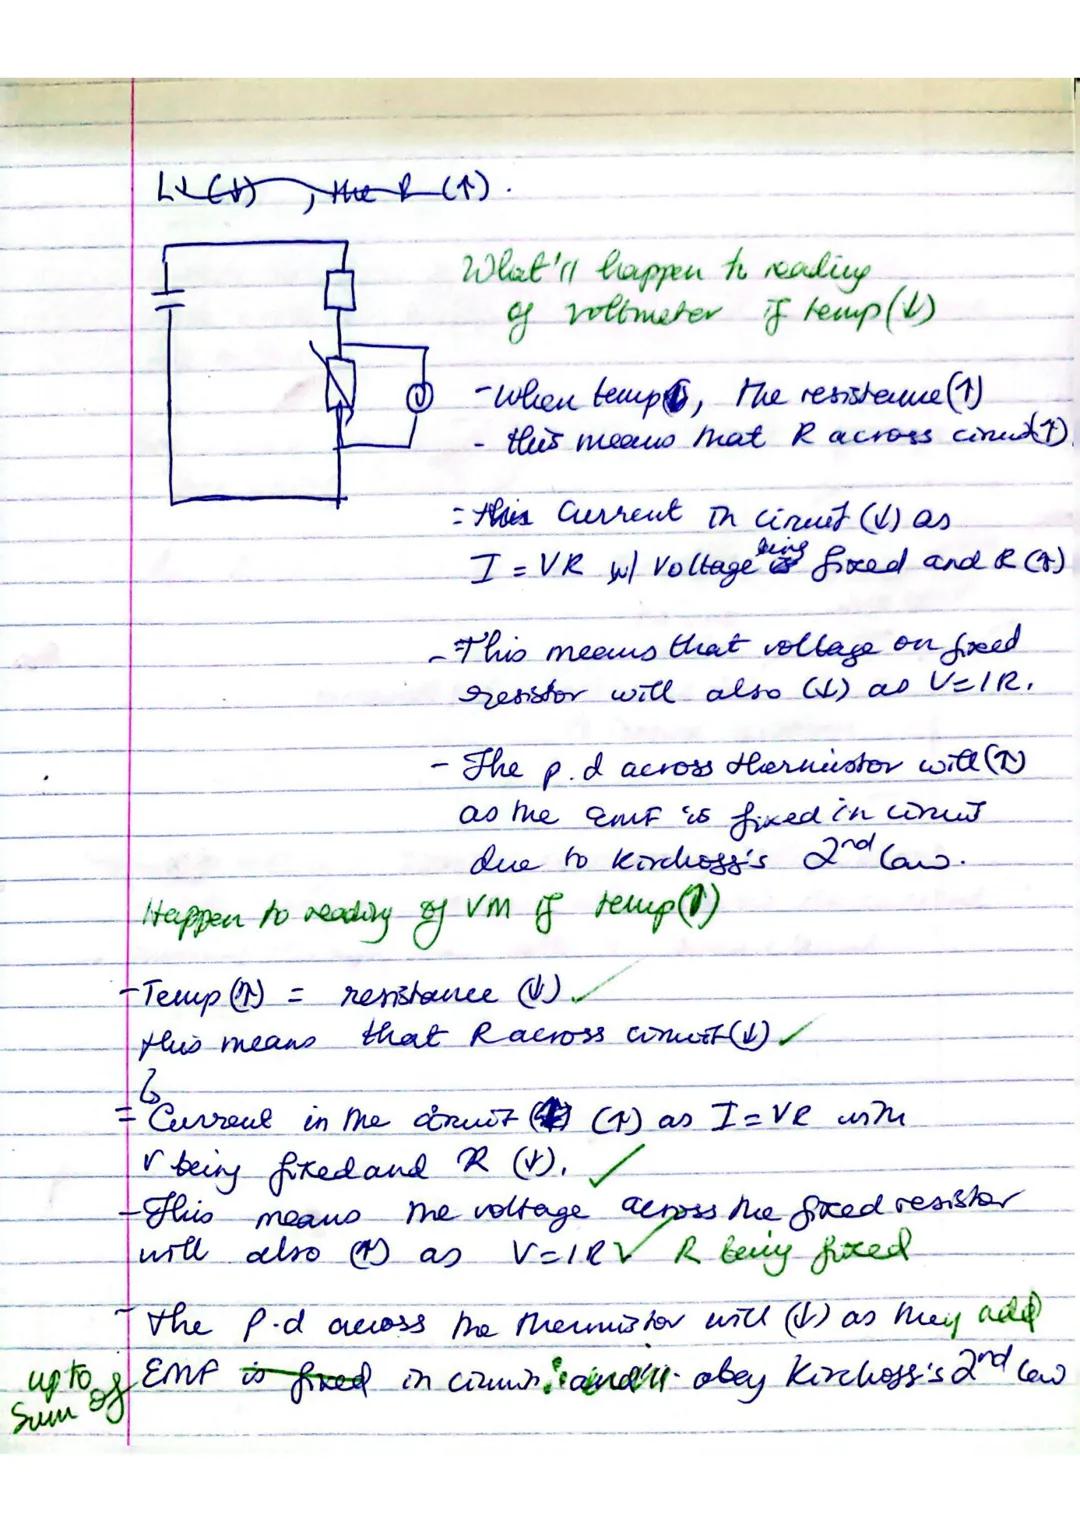 L↓(↓), the R (↑).
What'll happen to reading
of voltmeter if temp(↓)
V
- When temp↓, the resistance(↑)
- this means that R across circuit(↑).
= this Current in circuit (↓) as
I = VR w/ Voltage is being fixed and R (↑)
- This means that voltage on fixed
resistor will also (↓) as V=IR.
- The p.d across thermistor will (↑)
as the EMF is fixed in circuit
due to Kirchoff's 2nd law.
Happen to reading of VM if temp(↑)
- Temp (↑) = resistance (↓). ✓
this means that R across circuit(↓) ✓
= Current in the circuit (↑) as I = VR with
V being fixed and R (↓). ✓
- This means the voltage across the fixed resistor
will also (↑) as V=IR ✓ R being fixed
- the p.d across the thermistor will (↓) as they add
up to sum of EMF is fixed in circuit and 'll obey Kirchoff's 2nd law